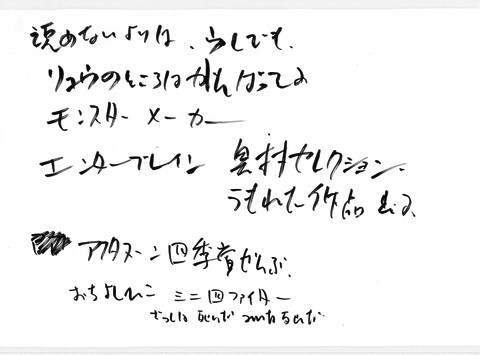 読めないよりは、少しでも、
リュウのところはがんばってよ
モンスターメーカー
エンターブレイン 奥村セレクション、
うもれた作品 出る
アフタヌーン四季賞ぜんぶ、
おちよしひこ ミニ四ファイター
ざっしは 死んだ